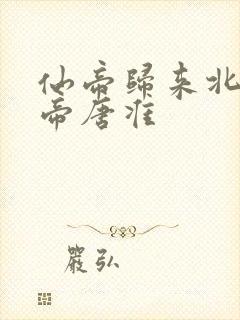 仙帝歸来北
帝唐淮
嚴弘